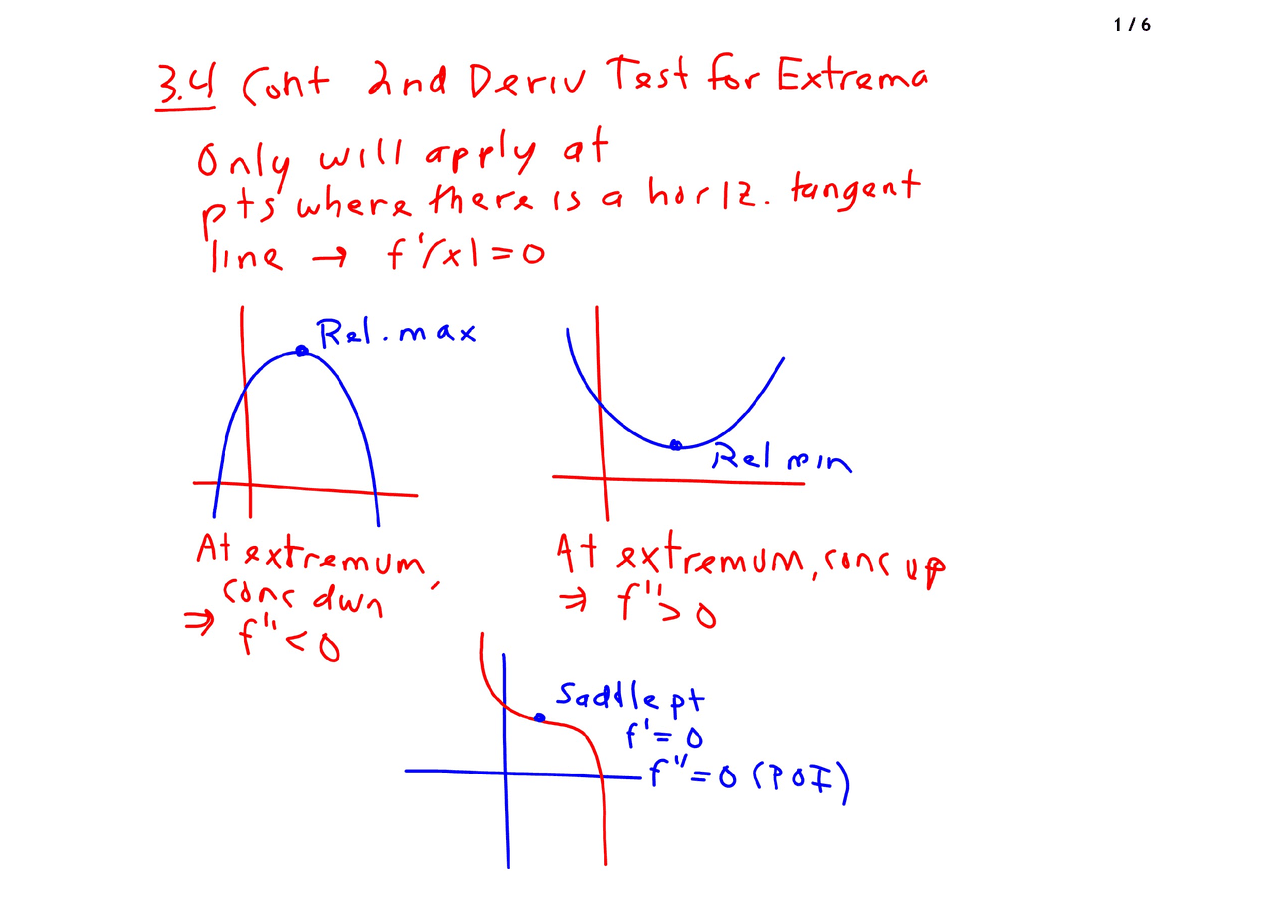 1 / 6
3.4 Cont 2nd Deriv Test for Extrema
Only will apply at
pts where there is a horiz. tangent
line → f'(x)=0
Rel. max
Rel min
At extremum,
conc dwn
⇒ f''<0
At extremum, conc up
⇒ f''>0
Saddle pt
f'=0
f''=0 (POI)